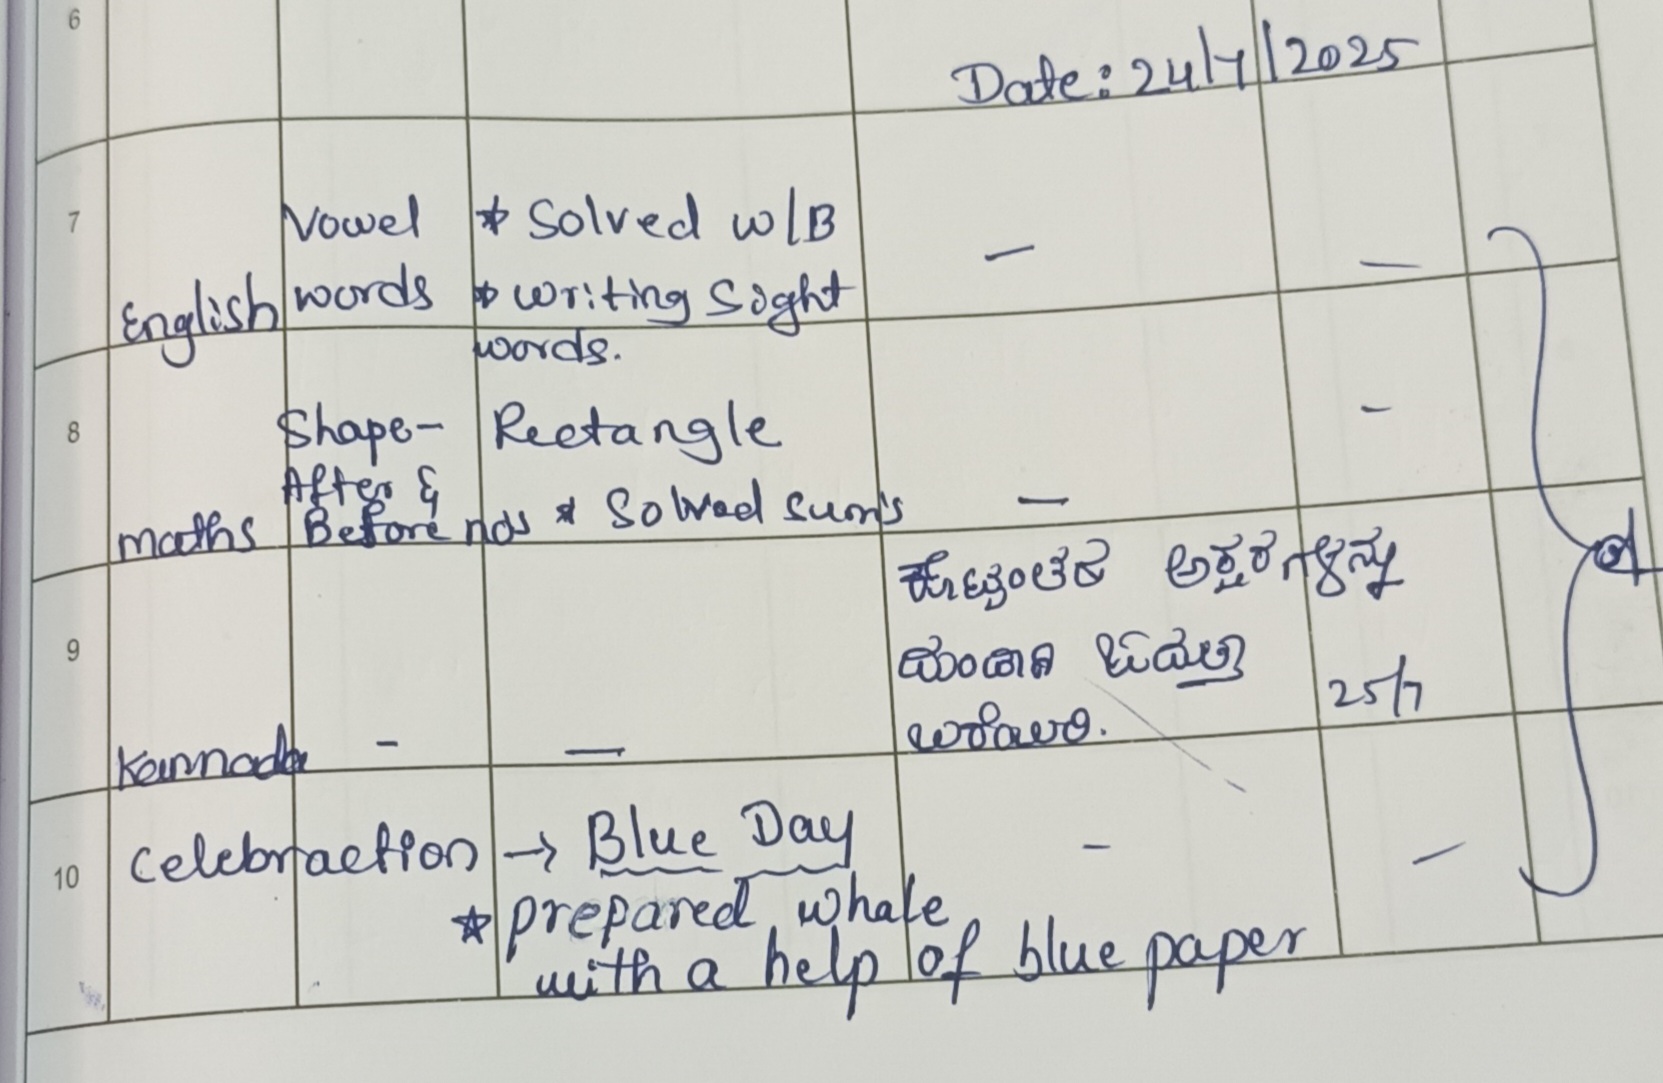 6
Date: 24/7/2025
7
Vowel * Solved w/B — —
English words * writing Sight
words.
8
Shape- Rectangle -
After &
maths Before nos * Solved sum's —
ಅಕ್ಷರಗಳನ್ನು
9
25/7
Kannada - —
ಬರೆಯಿರಿ.
10
Celebraction → Blue Day - —
* prepared whale
with a help of blue paper